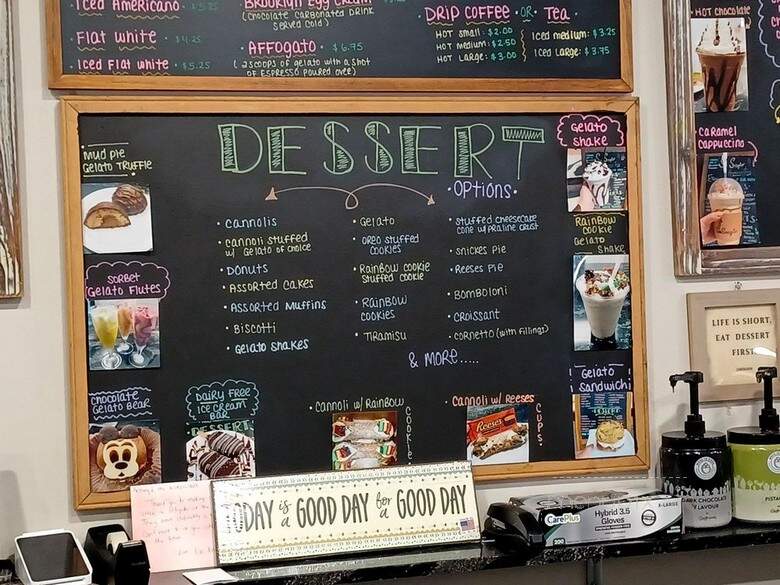 Iced Americano
Flat white • $4.25
Iced Flat white • $5.25
Brooklyn Egg Cream
(chocolate carbonated drink
served cold)
• Affogato • $6.75
(2 scoops of gelato with a shot
of espresso poured over)
• Drip Coffee • OR • Tea •
Hot small: $2.00
Hot medium: $2.50
Hot Large: $3.00
Iced medium: $3.25
Iced Large: $3.75
Hot chocolate
Caramel
Cappuccino
DESSERT
• Options •
Mud pie
Gelato Truffle
Sorbet
Gelato Flutes
Chocolate
Gelato Bear
Dairy Free
Ice cream
Bar
• cannolis
• cannoli stuffed
w/ Gelato of choice
• Donuts
• Assorted cakes
• Assorted Muffins
• Biscotti
• Gelato shakes
• Gelato
• Oreo stuffed
cookies
• Rainbow cookie
stuffed cookie
• Rainbow
cookies
• Tiramisu
• Stuffed cheesecake
cone w/ praline crust
• Snickes Pie
• Reeses Pie
• Bomboloni
• Croissant
• Cornetto (with fillings)
& more.....
Gelato
Shake
Rainbow
Cookie
Gelato
Shake
Gelato
Sandwich
• Cannoli w/ Rainbow
Cookie
• Cannoli w/ Reeses
Cups.
Reese's
LIFE IS SHORT,
EAT DESSERT
FIRST
TODAY is a GOOD DAY for a GOOD DAY
CarePlus
Hybrid 3.5
Gloves
X-LARGE
200
DARK CHOCOLATE
FLAVOUR